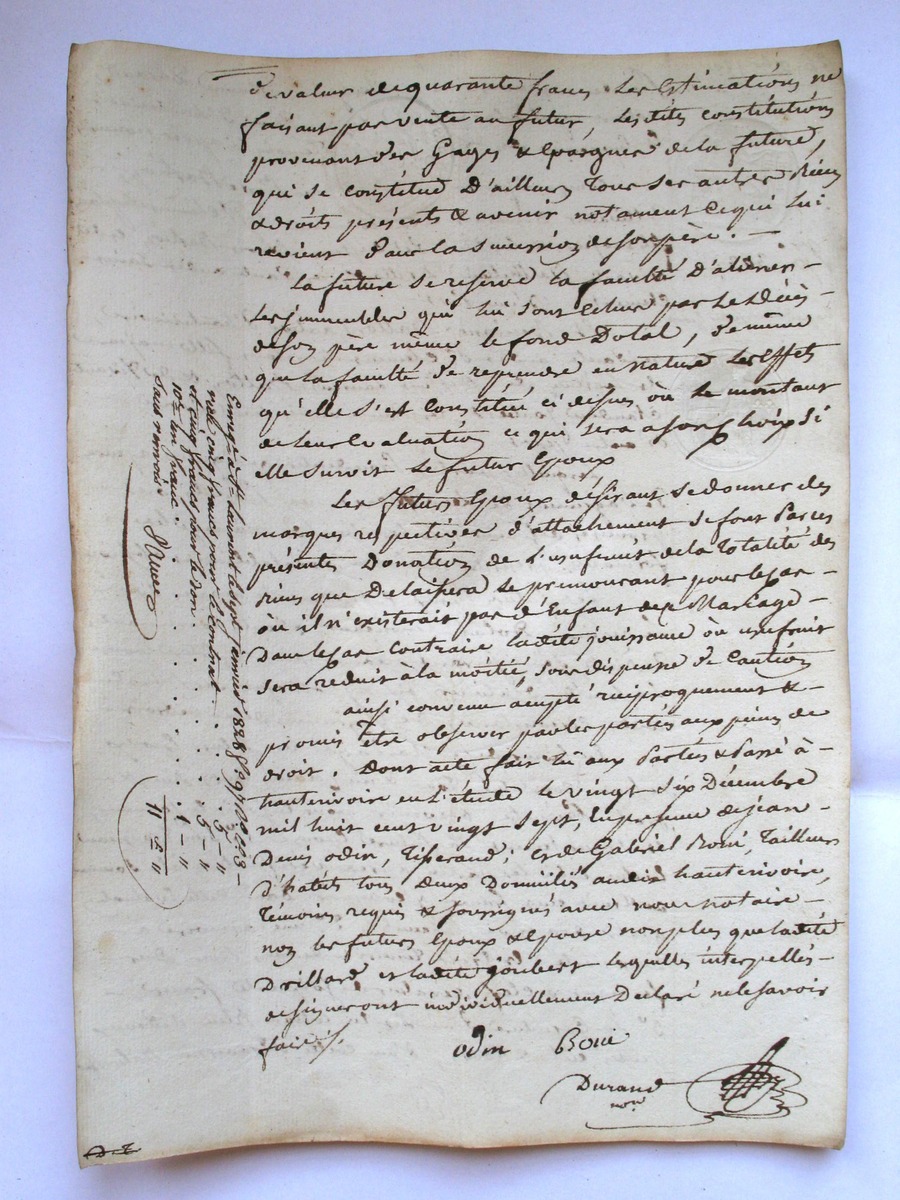 de valeur de quarante francs les Estimations ne
faisant pas vente au futur, lesdites constitutions
provenant des Gages & Epargnes de la future,
qui se constitue d'ailleurs tous ses autres Biens
& droits présents & avenir notament ce qui lui
revient dans la succession de son père. —
La future se reserve la faculté d'aliéner —
les jmmeubles qui lui sont échus par le décès —
de son père même le fond Dotal, de même
que la faculté de reprendre en nature les Effets
qu'elle s'est constitué ci dessus où le montant
de leur évaluation ce qui sera a son Choix si
elle survit le futur Epoux
Les futurs Epoux désirant se donner des
marques respectives d'attachement se font Par ces
présentes Donation de l'usufruit de la Totalité des
Biens que Delaissera le premourant pour le cas —
où il n'existerait pas d'Enfant de ce Mariage —
Dans le cas contraire ladite jouissance où usufruit
sera réduit à la moitié, sous dispense de Caution
ainsi convenu accepté réciproquement & —
promis être observer par les parties aux peines de
droit. Dont acte fait lu aux Parties & Passé à —
hauterivoire en l'étude le vingt six Décembre
mil huit cent vingt sept, En présence de jean —
Denis odin, Tisserand; et de Gabriel Boni, Tailleur
D'habits tous deux Domiciliés audit hauterivoire,
Témoins requis & soussignés avec nous notaire —
non les futurs Epoux & Epouse non plus que ladite
Drillard et ladite joubert lesquelles interpellés —
de signer ont individuellement Declaré ne le savoir
faire ./.
odin Boni
Durand
nore
Enregé à St Laurent le sept janvier 1828 fo 97 Vo C 3 —
reçu cinq francs pour le contrat . . . . 5 — "
et cinq francs pour le don . . . . 5 — "
10me un franc . . . . 1 — "
sans renvois.
11 "
D. T.